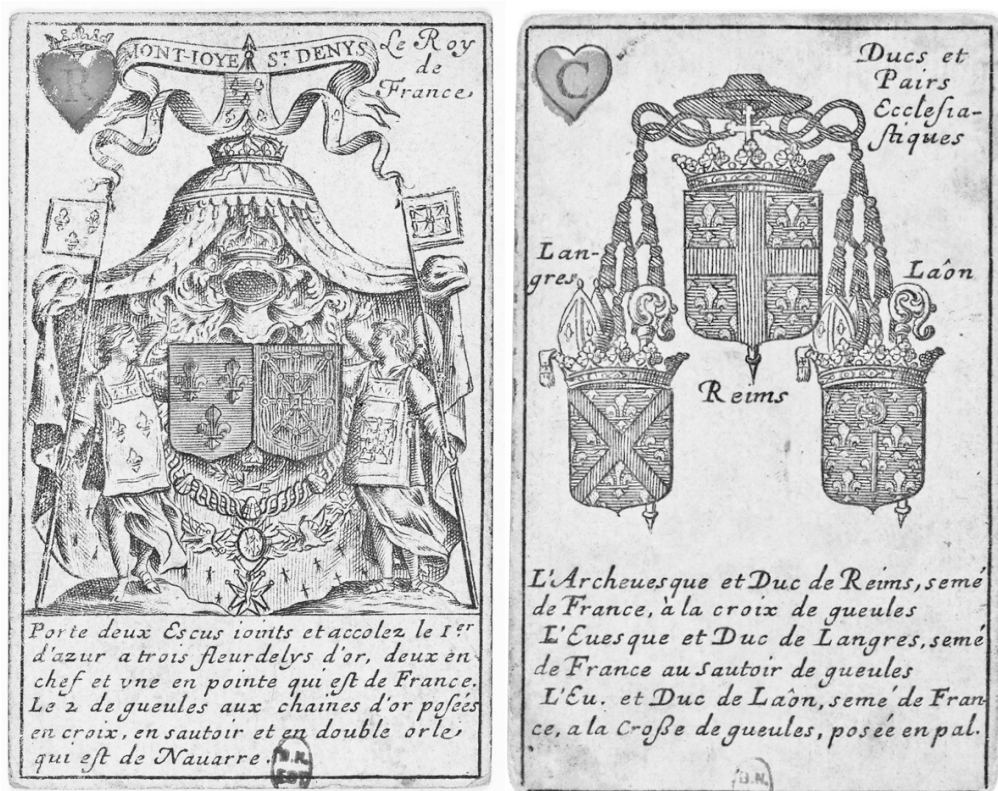 R
MONT-IOYE St. DENYS
Le Roy
de
France
Porte deux Escus ioints et accolez le 1er
d'azur a trois fleurdelys d'or, deux en
chef et vne en pointe qui est de France.
Le 2 de gueules aux chaines d'or posées
en croix, en sautoir et en double orle,
qui est de Nauarre.
C
Ducs et
Pairs
Ecclesia-
stiques
Lan-
gres
Laôn
Reims
L'Archeuesque et Duc de Reims, semé
de France, à la croix de gueules
L'Euesque et Duc de Langres, semé
de France au sautoir de gueules
L'Eu. et Duc de Laôn, semé de Fran-
ce, a la Croße de gueules, posée en pal.
B.N.